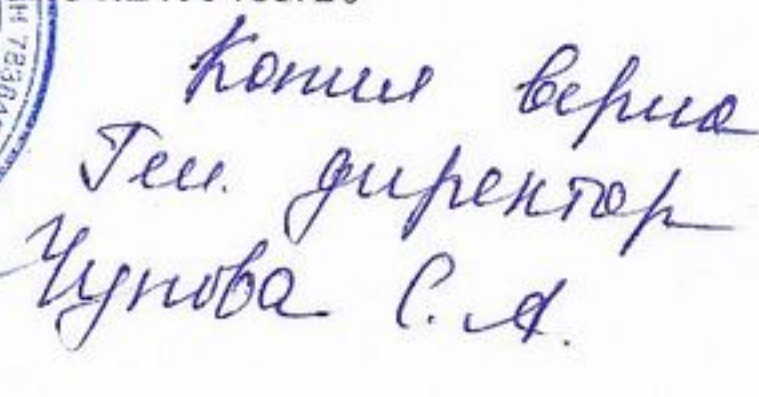 Копия верна
Ген. директор
Чунова С. А.